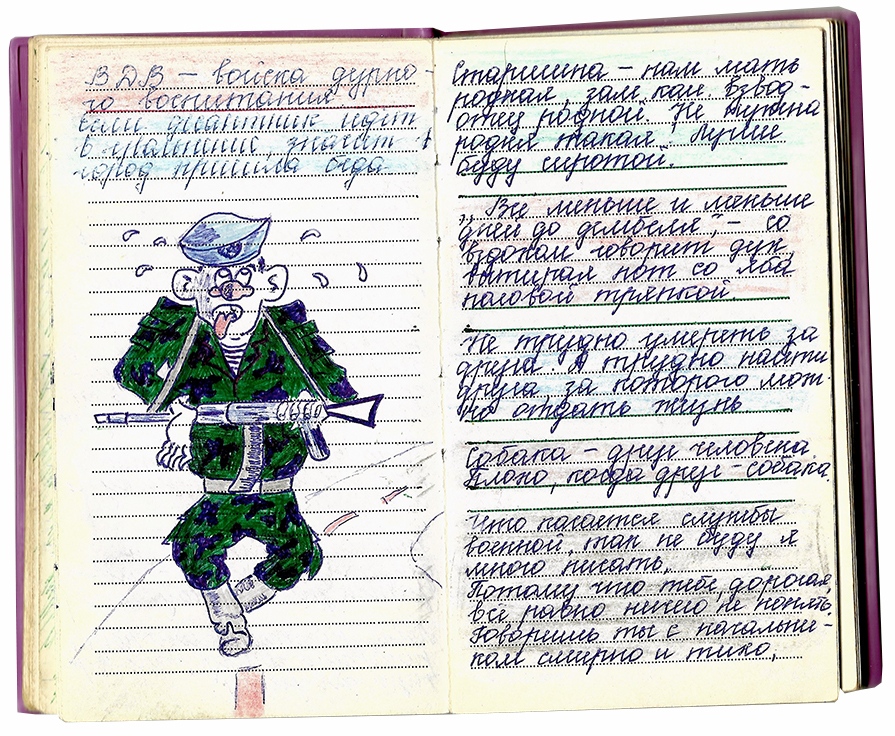 ВДВ – войска дурно-
го воспитания
Если десантник идёт
в увольнение, значит в
город пришла беда
Старшина – нам мать
родная, зам. ком. взвод-
отец родной. Не нужна
родня такая. Лучше
буду сиротой.
„Всё меньше и меньше
дней до дембеля", – со
вздохом говорит дух,
вытирая пот со лба
половой тряпкой.
Не трудно умереть за
друга. А трудно найти
друга, за которого мож-
но отдать жизнь
Собака – друг человека.
Плохо, когда друг – собака.
Что касается службы
военной, так не буду я
много писать.
Потому что тебе, дорогая,
всё равно ничего не понять.
Говоришь ты с начальни-
ком смирно и тихо,